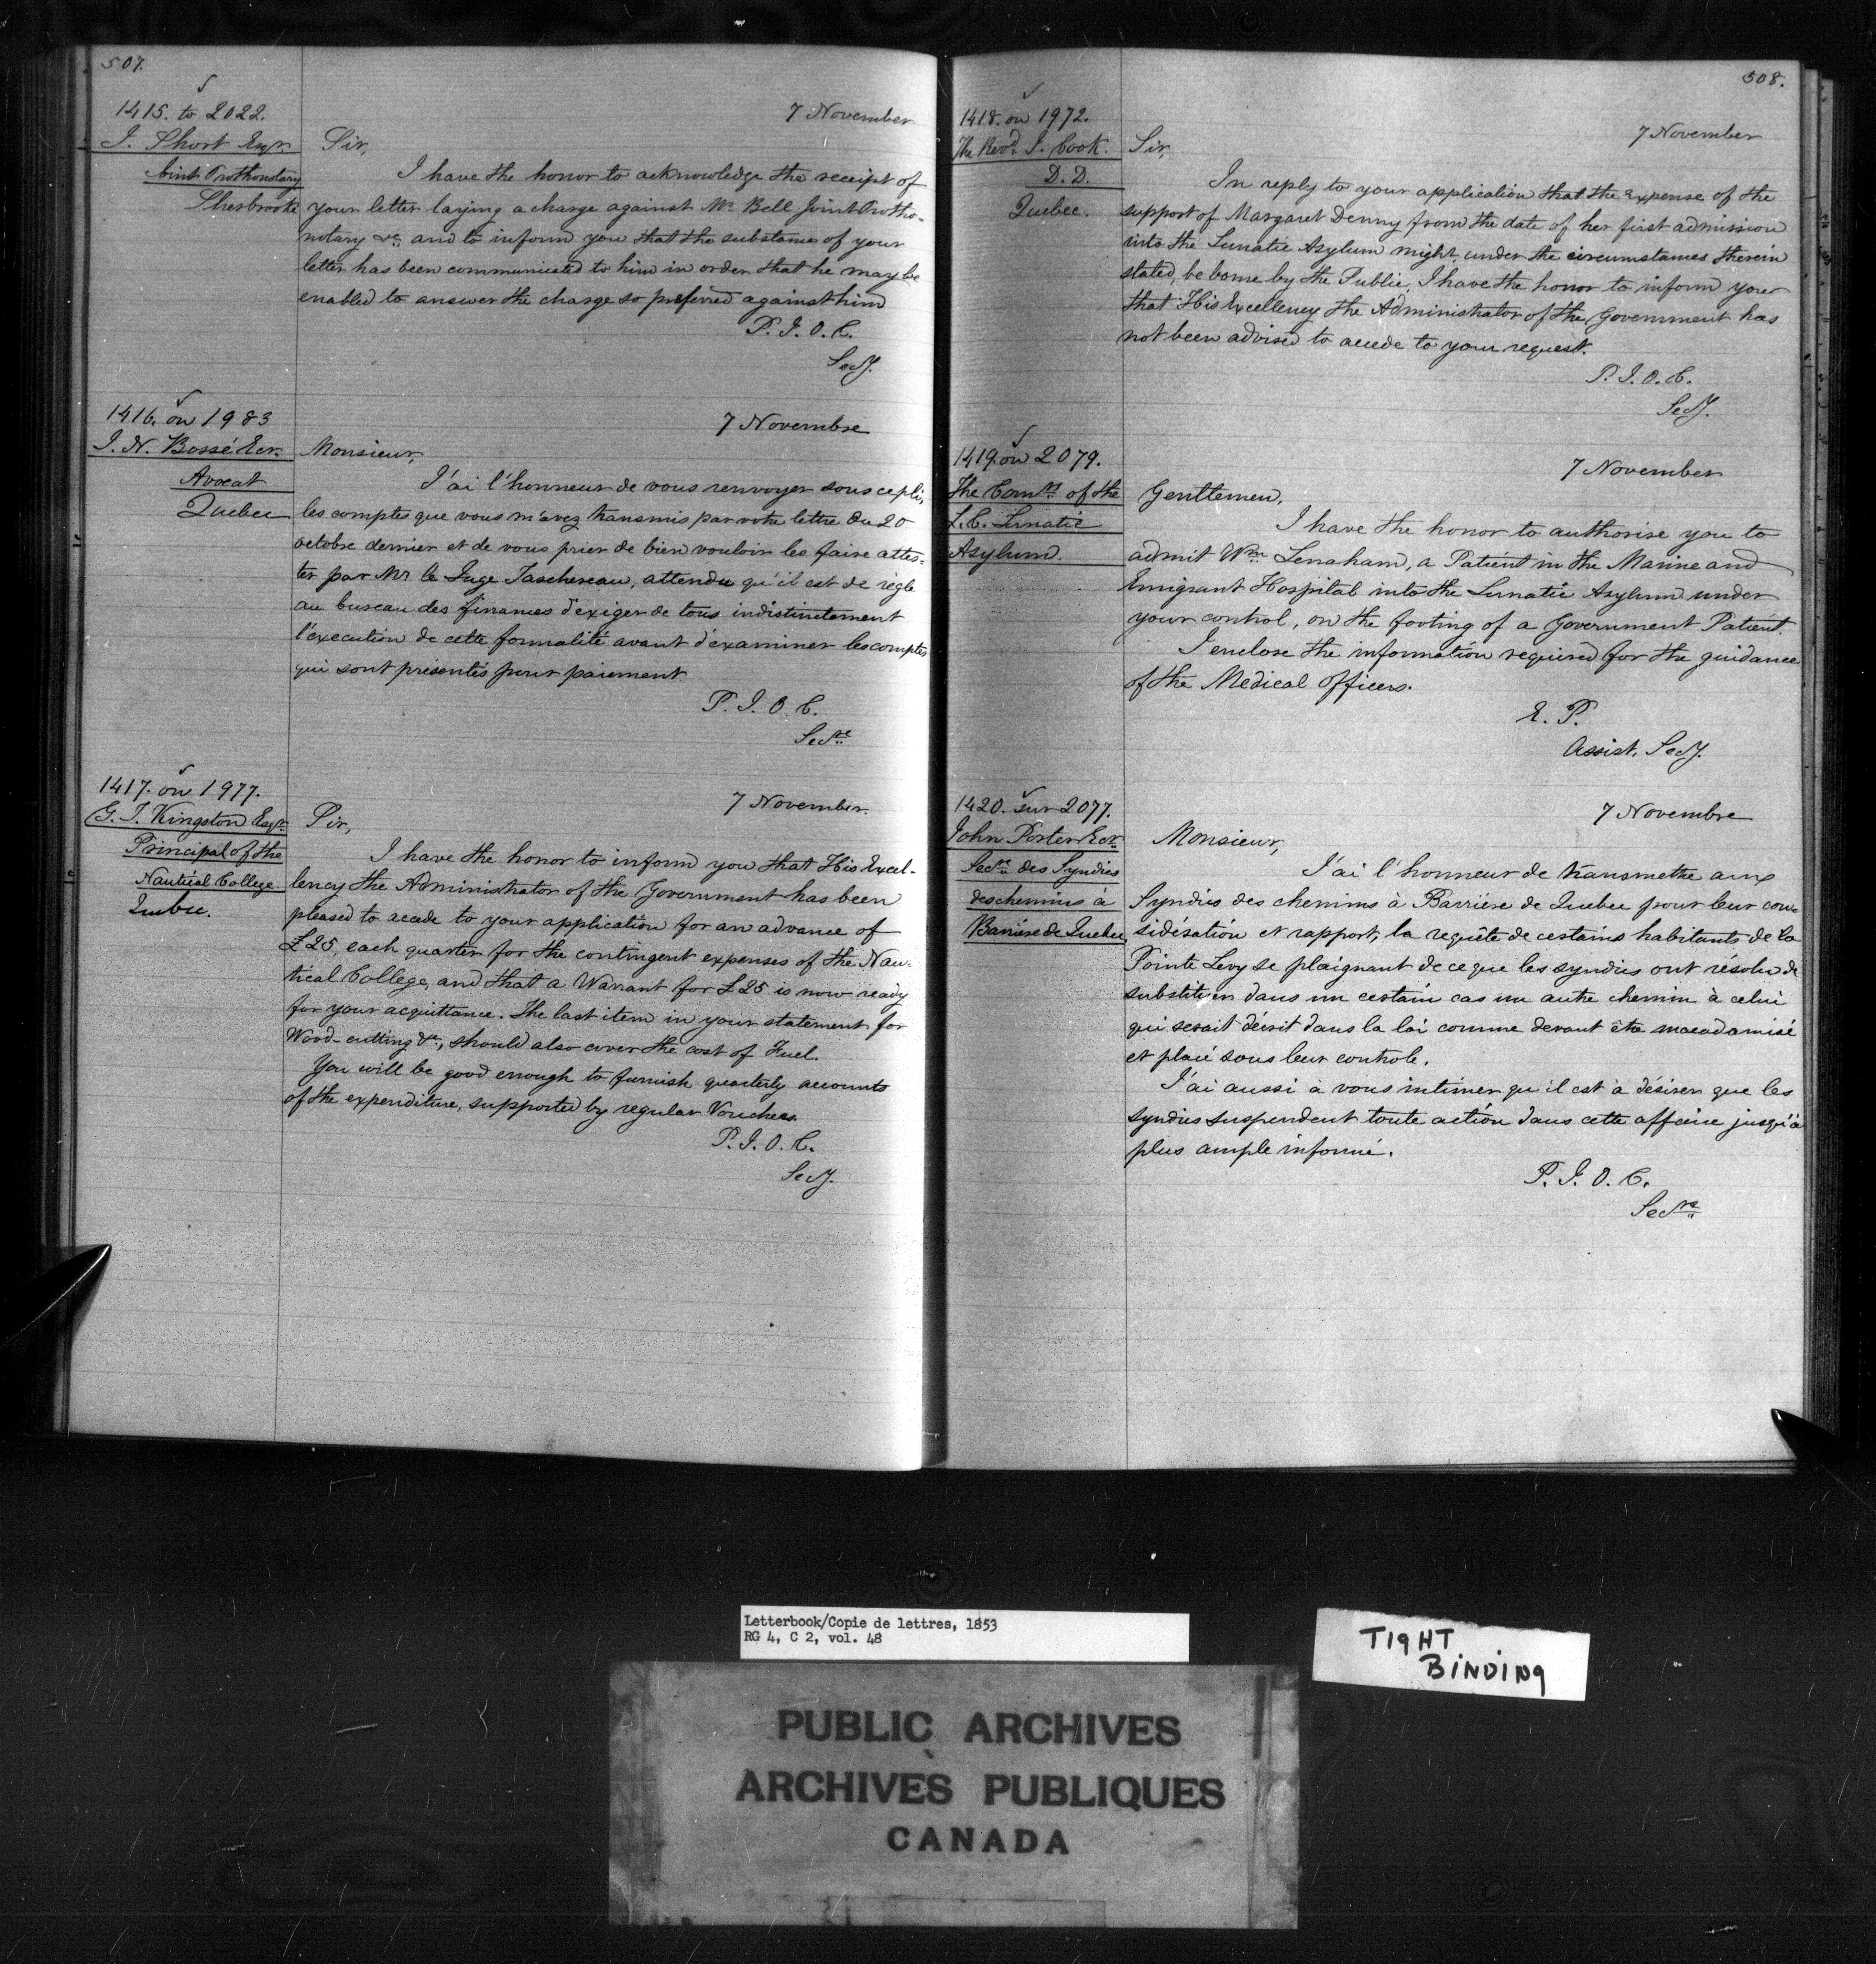 507.
1415. to 2022.
J. Short Esqr.
Joint Prothonotary
Sherbrooke
7 November
Sir,
I have the honor to acknowledge the receipt of
your letter laying a charge against Mr. Bell Joint Protho-
notary &c. and to inform you that the substance of your
letter has been communicated to him in order that he may be
enabled to answer the charge so preferred against him
P. J. O. C.
Secy.
1416. on 1983
J. N. Bossé Ecr.
Avocat
Quebec
7 Novembre
Monsieur,
J'ai l'honneur de vous renvoyer sous ce pli,
les comptes que vous m'avez transmis par votre lettre du 20
octobre dernier et de vous prier de bien vouloir les faire attes-
ter par Mr le Juge Taschereau, attendu qu'il est de règle
au bureau des finances d'exiger de tous indistinctement
l'execution de cette formalité avant d'examiner les comptes
qui sont présentés pour paiement
P. J. O. C.
Secre
1417. on 1977.
G. T. Kingston Esqr.
Principal of the
Nautical College.
Quebec.
7 November.
Sir,
I have the honor to inform you that His Excel-
lency the Administrator of the Government has been
pleased to accede to your application for an advance of
£25, each quarter for the contingent expenses of the Nau-
tical College, and that a Warrant for £25 is now ready
for your acquittance. The last item in your statement for
Wood-cutting &c, should also cover the cost of Fuel.
You will be good enough to furnish quarterly accounts
of the expenditure, supported by regular Vouchers.
P. J. O. C.
Secy.
508.
1418. on 1972.
The Revd. J. Cook.
D. D.
Quebec.
7 November
Sir,
In reply to your application that the expense of the
support of Margaret Denny from the date of her first admission
into the Lunatic Asylum might, under the circumstances therein
stated, be borne by the Public, I have the honor to inform you
that His Excellency the Administrator of the Government has
not been advised to accede to your request.
P. J. O. C.
Secy.
1419. on 2079.
The Comrs. of the
L. C. Lunatic
Asylum.
7 November
Gentlemen,
I have the honor to authorise you to
admit Wm. Lenaham, a Patient in the Marine and
Emigrant Hospital into the Lunatic Asylum under
your control, on the footing of a Government Patient.
I enclose the information required for the guidance
of the Medical Officers.
E. P.
Assist. Secy.
1420. sur 2077.
John Porter Ecr
Secre des Syndics
des chemins à
Barrière de Quebec
7 Novembre
Monsieur,
J'ai l'honneur de transmettre aux
Syndics des chemins à Barrière de Quebec pour leur con-
sidération et rapport, la requête de certains habitants de la
Pointe Levy se plaignant de ce que les syndics ont résolu de
substituer dans un certain cas un autre chemin à celui
qui serait décrit dans la loi comme devant être macadamisé
et placé sous leur controle.
J'ai aussi à vous intimer qu'il est à désirer que les
syndics suspendent toute action dans cette affaire jusqu'à
plus ample informé.
P. J. O. C.
Secre
Letterbook/Copie de lettres, 1853
RG 4, C 2, vol. 48
TIGHT
BINDING
PUBLIC ARCHIVES
ARCHIVES PUBLIQUES
CANADA